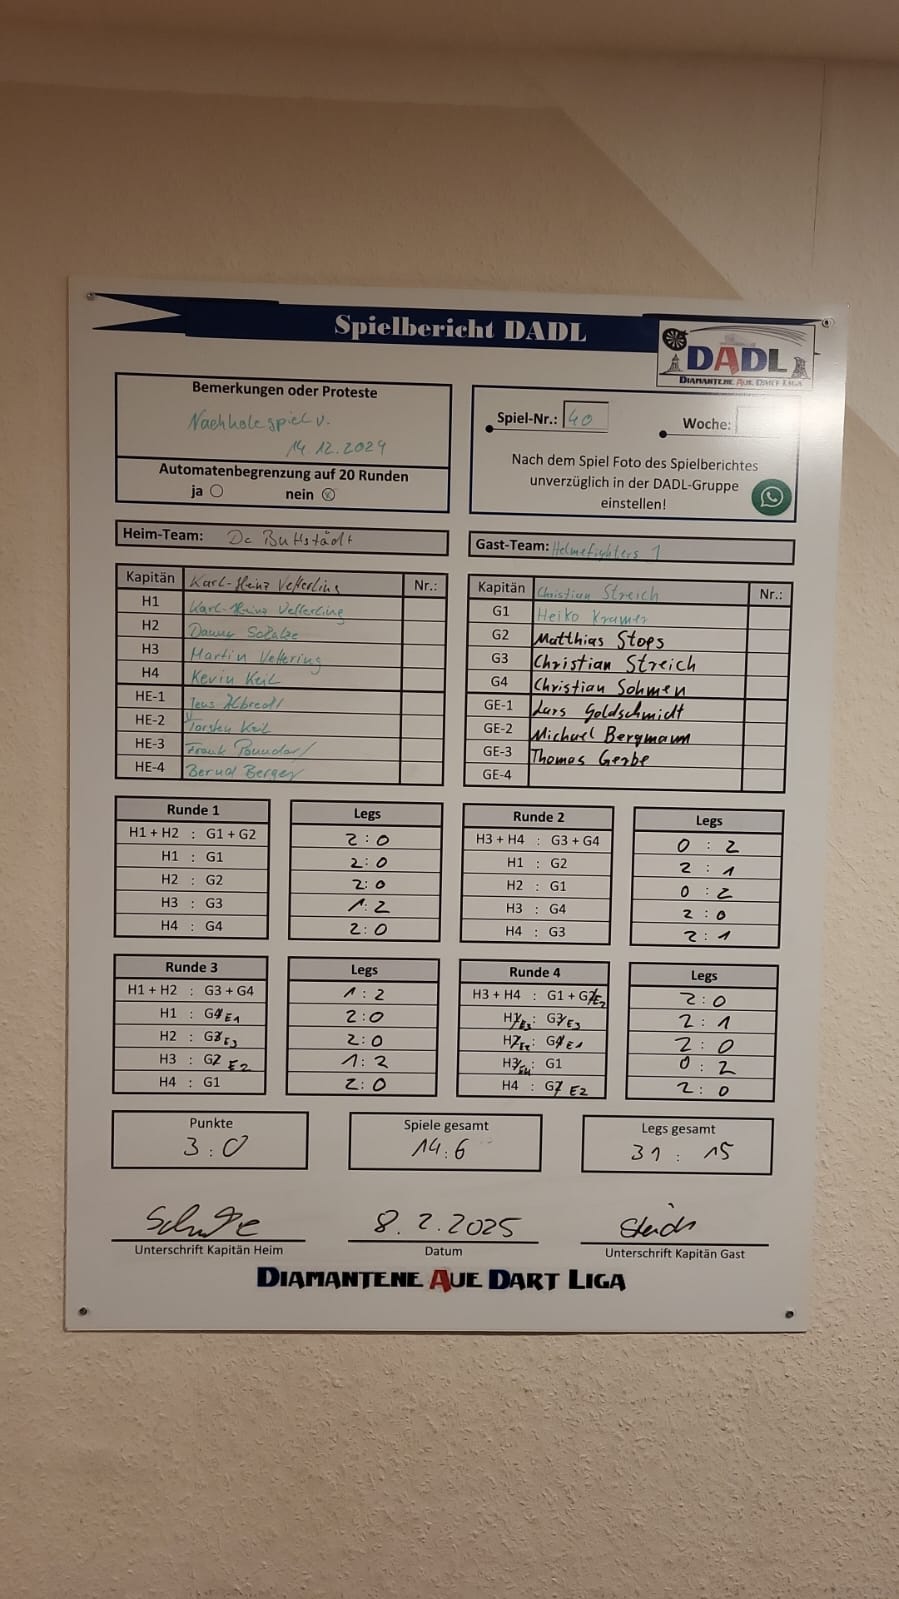 Spielbericht DADL
DADL
DIAMANTENE AUE DART LIGA
Bemerkungen oder Proteste
Nachholespiel v.
14.12.2024
Automatenbegrenzung auf 20 Runden
ja nein
Spiel-Nr.: 40 Woche:
Nach dem Spiel Foto des Spielberichtes
unverzüglich in der DADL-Gruppe
einstellen!
Heim-Team: Dc Buttstädt
Gast-Team: Helmefighters 1
Kapitän Karl-Heinz Vetterling Nr.:
H1 Karl-Heinz Vetterling
H2 Danny Schulze
H3 Martin Vettering
H4 Kevin Keil
HE-1 Jens Albrecht
HE-2 Torsten Keil
HE-3 Frank
HE-4 Bernd Berger
Kapitän Christian Streich Nr.:
G1 Heiko Kramer
G2 Matthias Stops
G3 Christian Streich
G4 Christian Sohmen
GE-1 Lars Goldschmidt
GE-2 Michael Bergmann
GE-3 Thomas Gerbe
GE-4
Runde 1 Legs
H1 + H2 : G1 + G2 2:0
H1 : G1 2:0
H2 : G2 2:0
H3 : G3 1:2
H4 : G4 2:0
Runde 2 Legs
H3 + H4 : G3 + G4 0 : 2
H1 : G2 2 : 1
H2 : G1 0 : 2
H3 : G4 2 : 0
H4 : G3 2 : 1
Runde 3 Legs
H1 + H2 : G3 + G4 1 : 2
H1 : G4 E1 2:0
H2 : G3 E3 2:0
H3 : G2 E2 1:2
H4 : G1 2:0
Runde 4 Legs
H3 + H4 : G1 + G2 E2 2:0
H1 E3 : G3 E3 2 : 1
H2 E2 : G4 E1 2 : 0
H3 E4 : G1 0 : 2
H4 : G2 E2 2 : 0
Punkte
3:0
Spiele gesamt
14:6
Legs gesamt
31 : 15
Schulze 8.2.2025 Streich
Unterschrift Kapitän Heim Datum Unterschrift Kapitän Gast
DIAMANTENE AUE DART LIGA